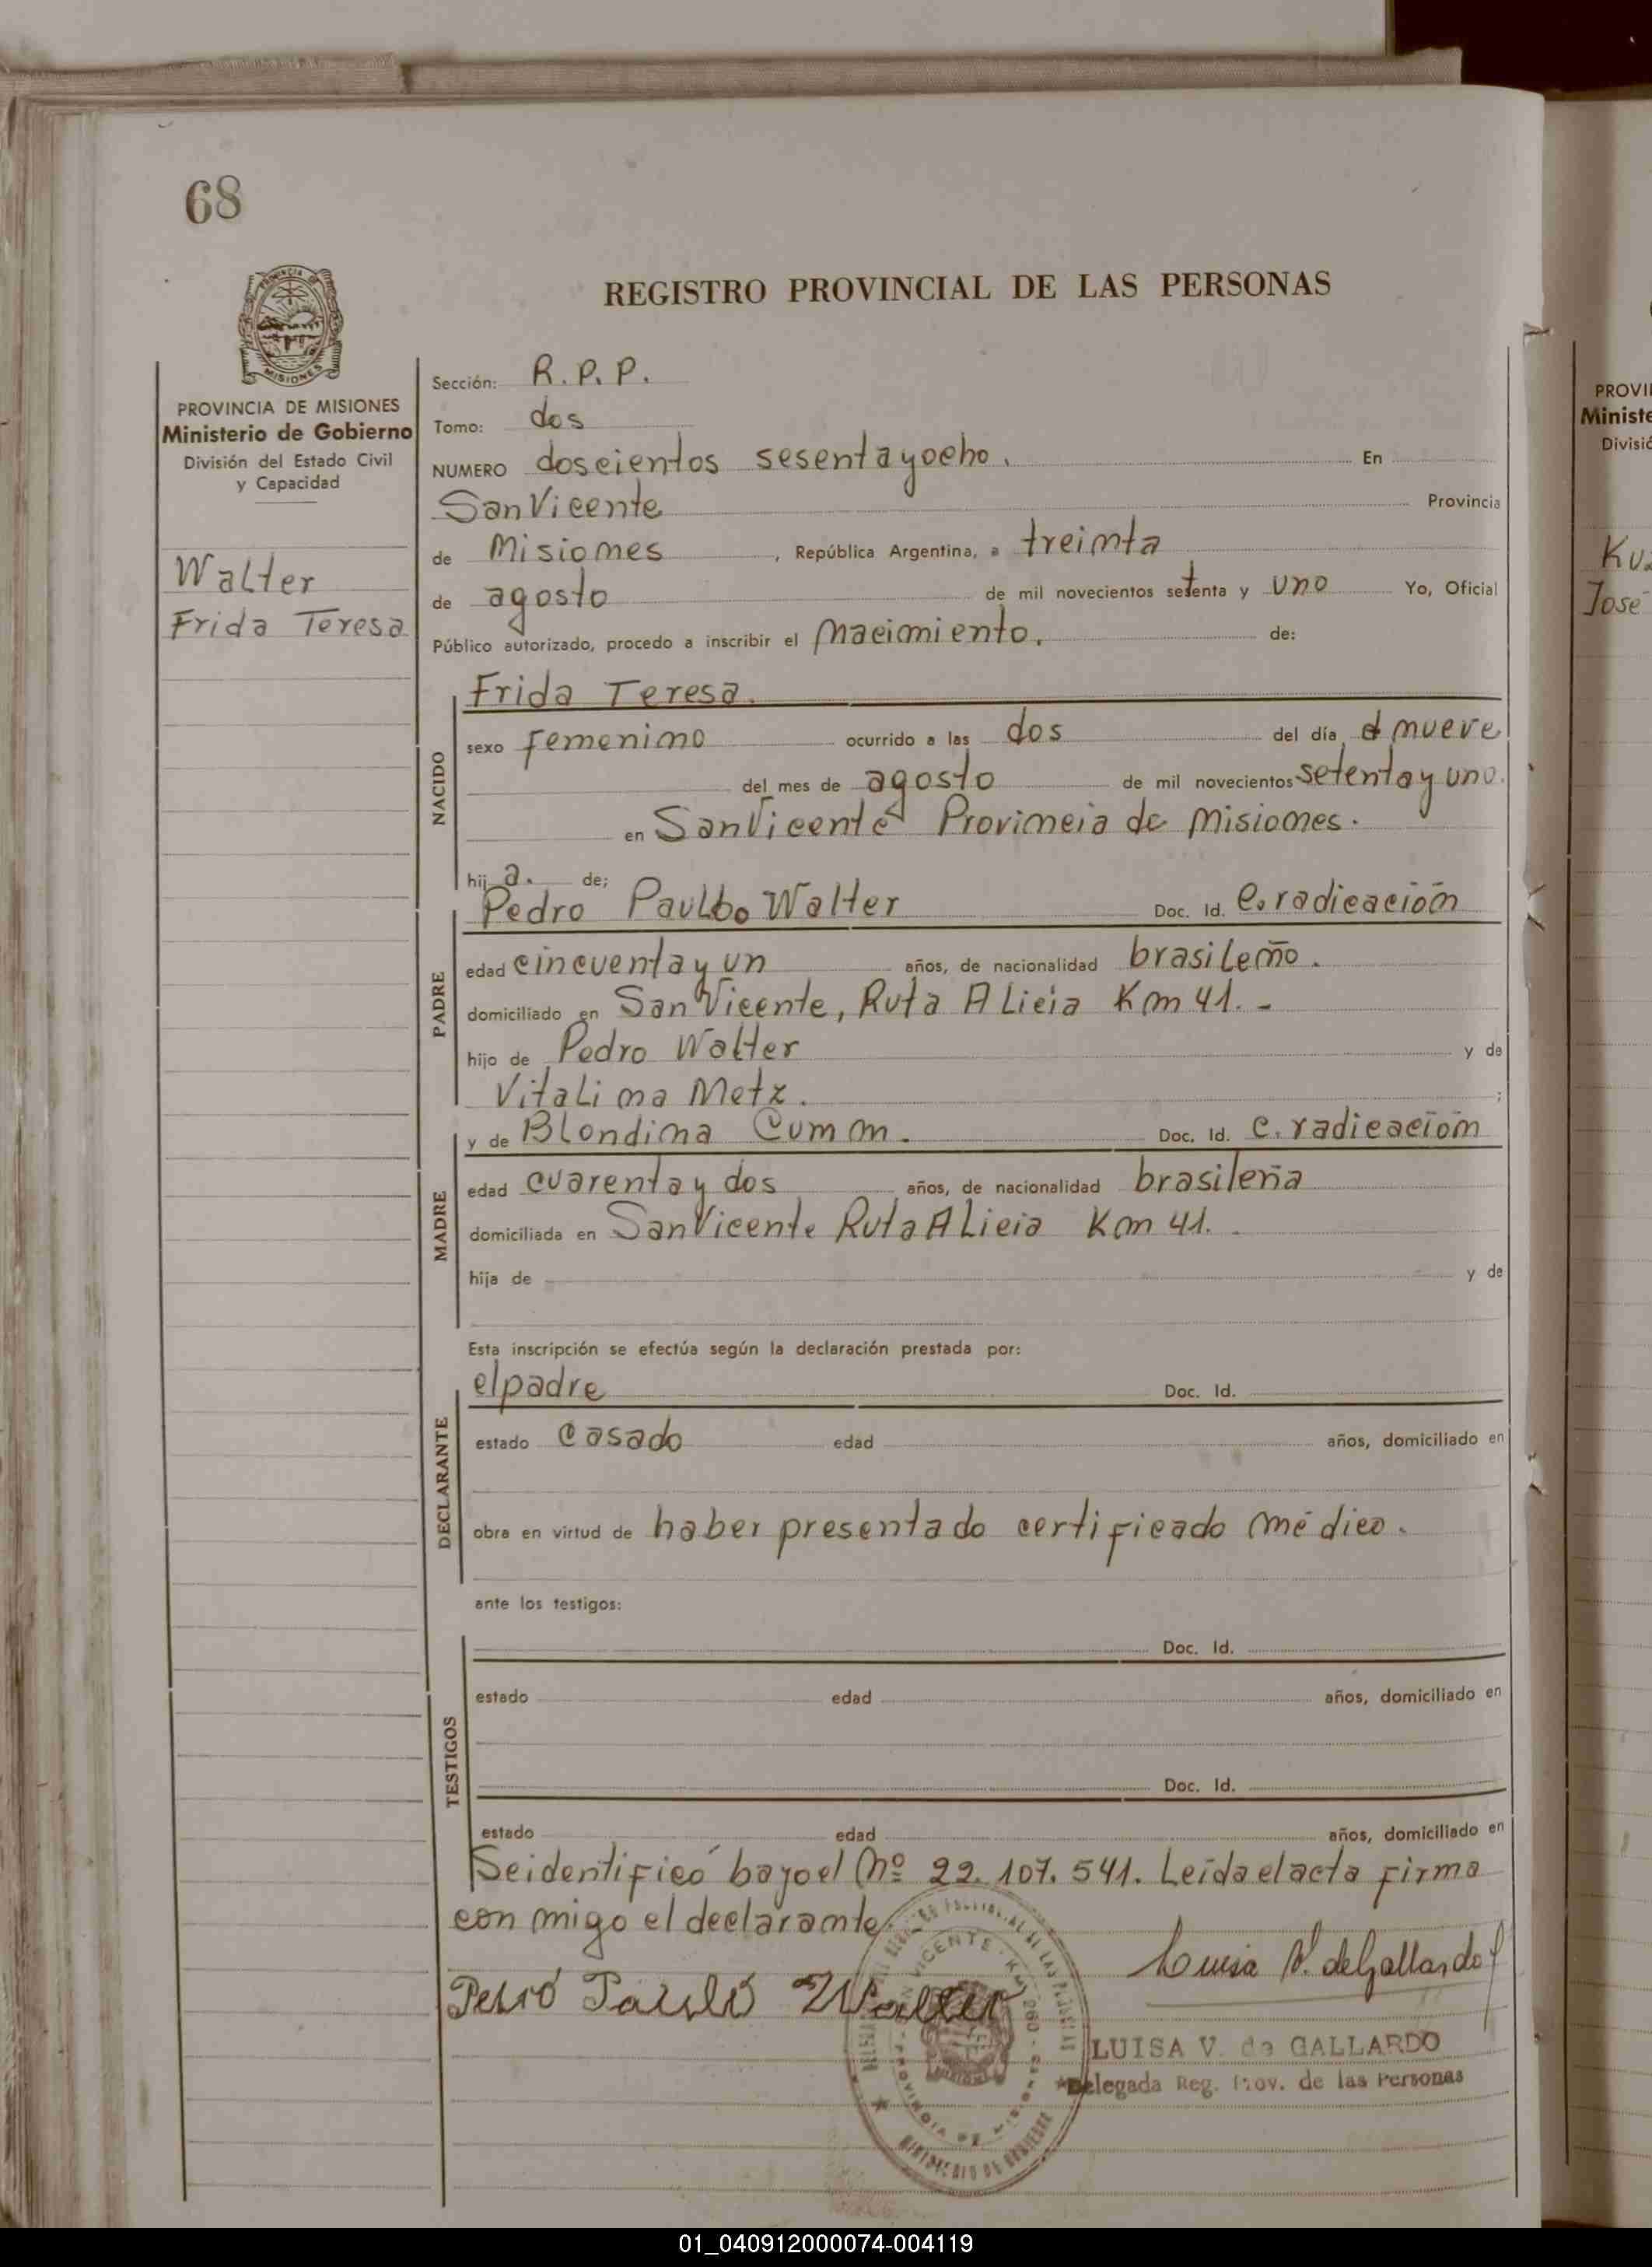 68
REGISTRO PROVINCIAL DE LAS PERSONAS
PROVINCIA DE MISIONES
Ministerio de Gobierno
División del Estado Civil
y Capacidad
Walter
Frida Teresa
Sección: R. P. P.
Tomo: dos
NUMERO doscientos sesenta y ocho. En
San Vicente Provincia
de Misiones, República Argentina, a treinta
de agosto de mil novecientos setenta y uno Yo, Oficial
Público autorizado, procedo a inscribir el nacimiento. de:
NACIDO
Frida Teresa.
sexo femenino ocurrido a las dos del día nueve
del mes de agosto de mil novecientos setenta y uno.
en San Vicente Provincia de Misiones.
hija. de;
PADRE
Pedro Paulo Walter Doc. Id. C. radicación
edad cincuenta y un años, de nacionalidad brasileño.
domiciliado en San Vicente, Ruta Alicia Km 41. -
hijo de Pedro Walter y de
Vitalina Metz. ;
MADRE
y de Blondina Cumm. Doc. Id. C. radicación
edad cuarenta y dos años, de nacionalidad brasileña
domiciliada en San Vicente Ruta Alicia Km 41.
hija de y de
Esta inscripción se efectúa según la declaración prestada por:
DECLARANTE
el padre Doc. Id.
estado casado edad años, domiciliado en
obra en virtud de haber presentado certificado médico.
ante los testigos:
TESTIGOS
Doc. Id.
estado edad años, domiciliado en
Doc. Id.
estado edad años, domiciliado en
Se identificó bajo el Nº 22.107.541. Leída el acta firma
conmigo el declarante.
Pedro Paulo Walter
Luisa V. de Gallardo
LUISA V. de GALLARDO
Delegada Reg. Prov. de las Personas
PROVI
Ministe
Divisió
José
01_040912000074-004119